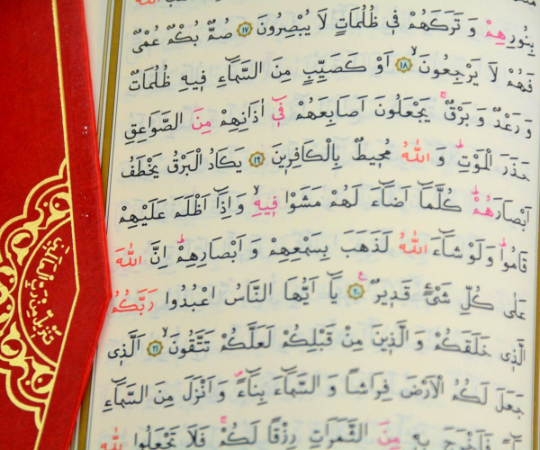 الله
بِنُورِهِمْ وَ تَرَكَهُمْ فٖى ظُلُمَاتٍ لَا يُبْصِرُونَ ﴿١٧﴾ صُمٌّ بُكْمٌ عُمْىٌ
فَهُمْ لَا يَرْجِعُونَۙ ﴿١٨﴾ اَوْ كَصَيِّبٍ مِنَ السَّمَٓاءِ فٖيهِ ظُلُمَاتٌ
وَ رَعْدٌ وَ بَرْقٌۚ يَجْعَلُونَ اَصَابِعَهُمْ فٖٓى اٰذَانِهِمْ مِنَ الصَّوَاعِقِ
حَذَرَ الْمَوْتِؕ وَ اللّٰهُ مُحٖيطٌ بِالْكَافِرٖينَ ﴿١٩﴾ يَكَادُ الْبَرْقُ يَخْطَفُ
اَبْصَارَهُمْؕ كُلَّمَٓا اَضَٓاءَ لَهُمْ مَشَوْا فٖيهِۙ وَ اِذَٓا اَظْلَمَ عَلَيْهِمْ
قَامُواؕ وَ لَوْ شَٓاءَ اللّٰهُ لَذَهَبَ بِسَمْعِهِمْ وَ اَبْصَارِهِمْؕ اِنَّ اللّٰهَ
عَلٰى كُلِّ شَیْءٍ قَدٖيرٌ ﴿٢٠﴾ يَٓا اَيُّهَا النَّاسُ اعْبُدُوا رَبَّكُمُ
الَّذٖى خَلَقَكُمْ وَ الَّذٖينَ مِنْ قَبْلِكُمْ لَعَلَّكُمْ تَتَّقُونَۙ ﴿٢١﴾ اَلَّذٖى
جَعَلَ لَكُمُ الْاَرْضَ فِرَاشًا وَ السَّمَٓاءَ بِنَٓاءًۖ وَ اَنْزَلَ مِنَ السَّمَٓاءِ
فَاَخْرَجَ بِهٖ مِنَ الثَّمَرَاتِ رِزْقًا لَكُمْۚ فَلَا تَجْعَلُوا لِلّٰهِ
تَنْزٖيلٌ مِنْ رَبِّ الْعَالَمٖينَ